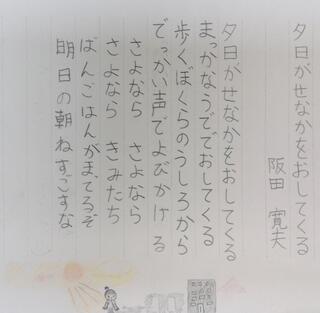 夕日がせなかをおしてくる
阪田 寛夫
夕日がせなかをおしてくる
まっかなうででおしてくる
歩くぼくらのうしろから
でっかい声でよびかける
さよなら さよなら
さよなら きみたち
ばんごはんがまてるぞ
明日の朝ねすごすな